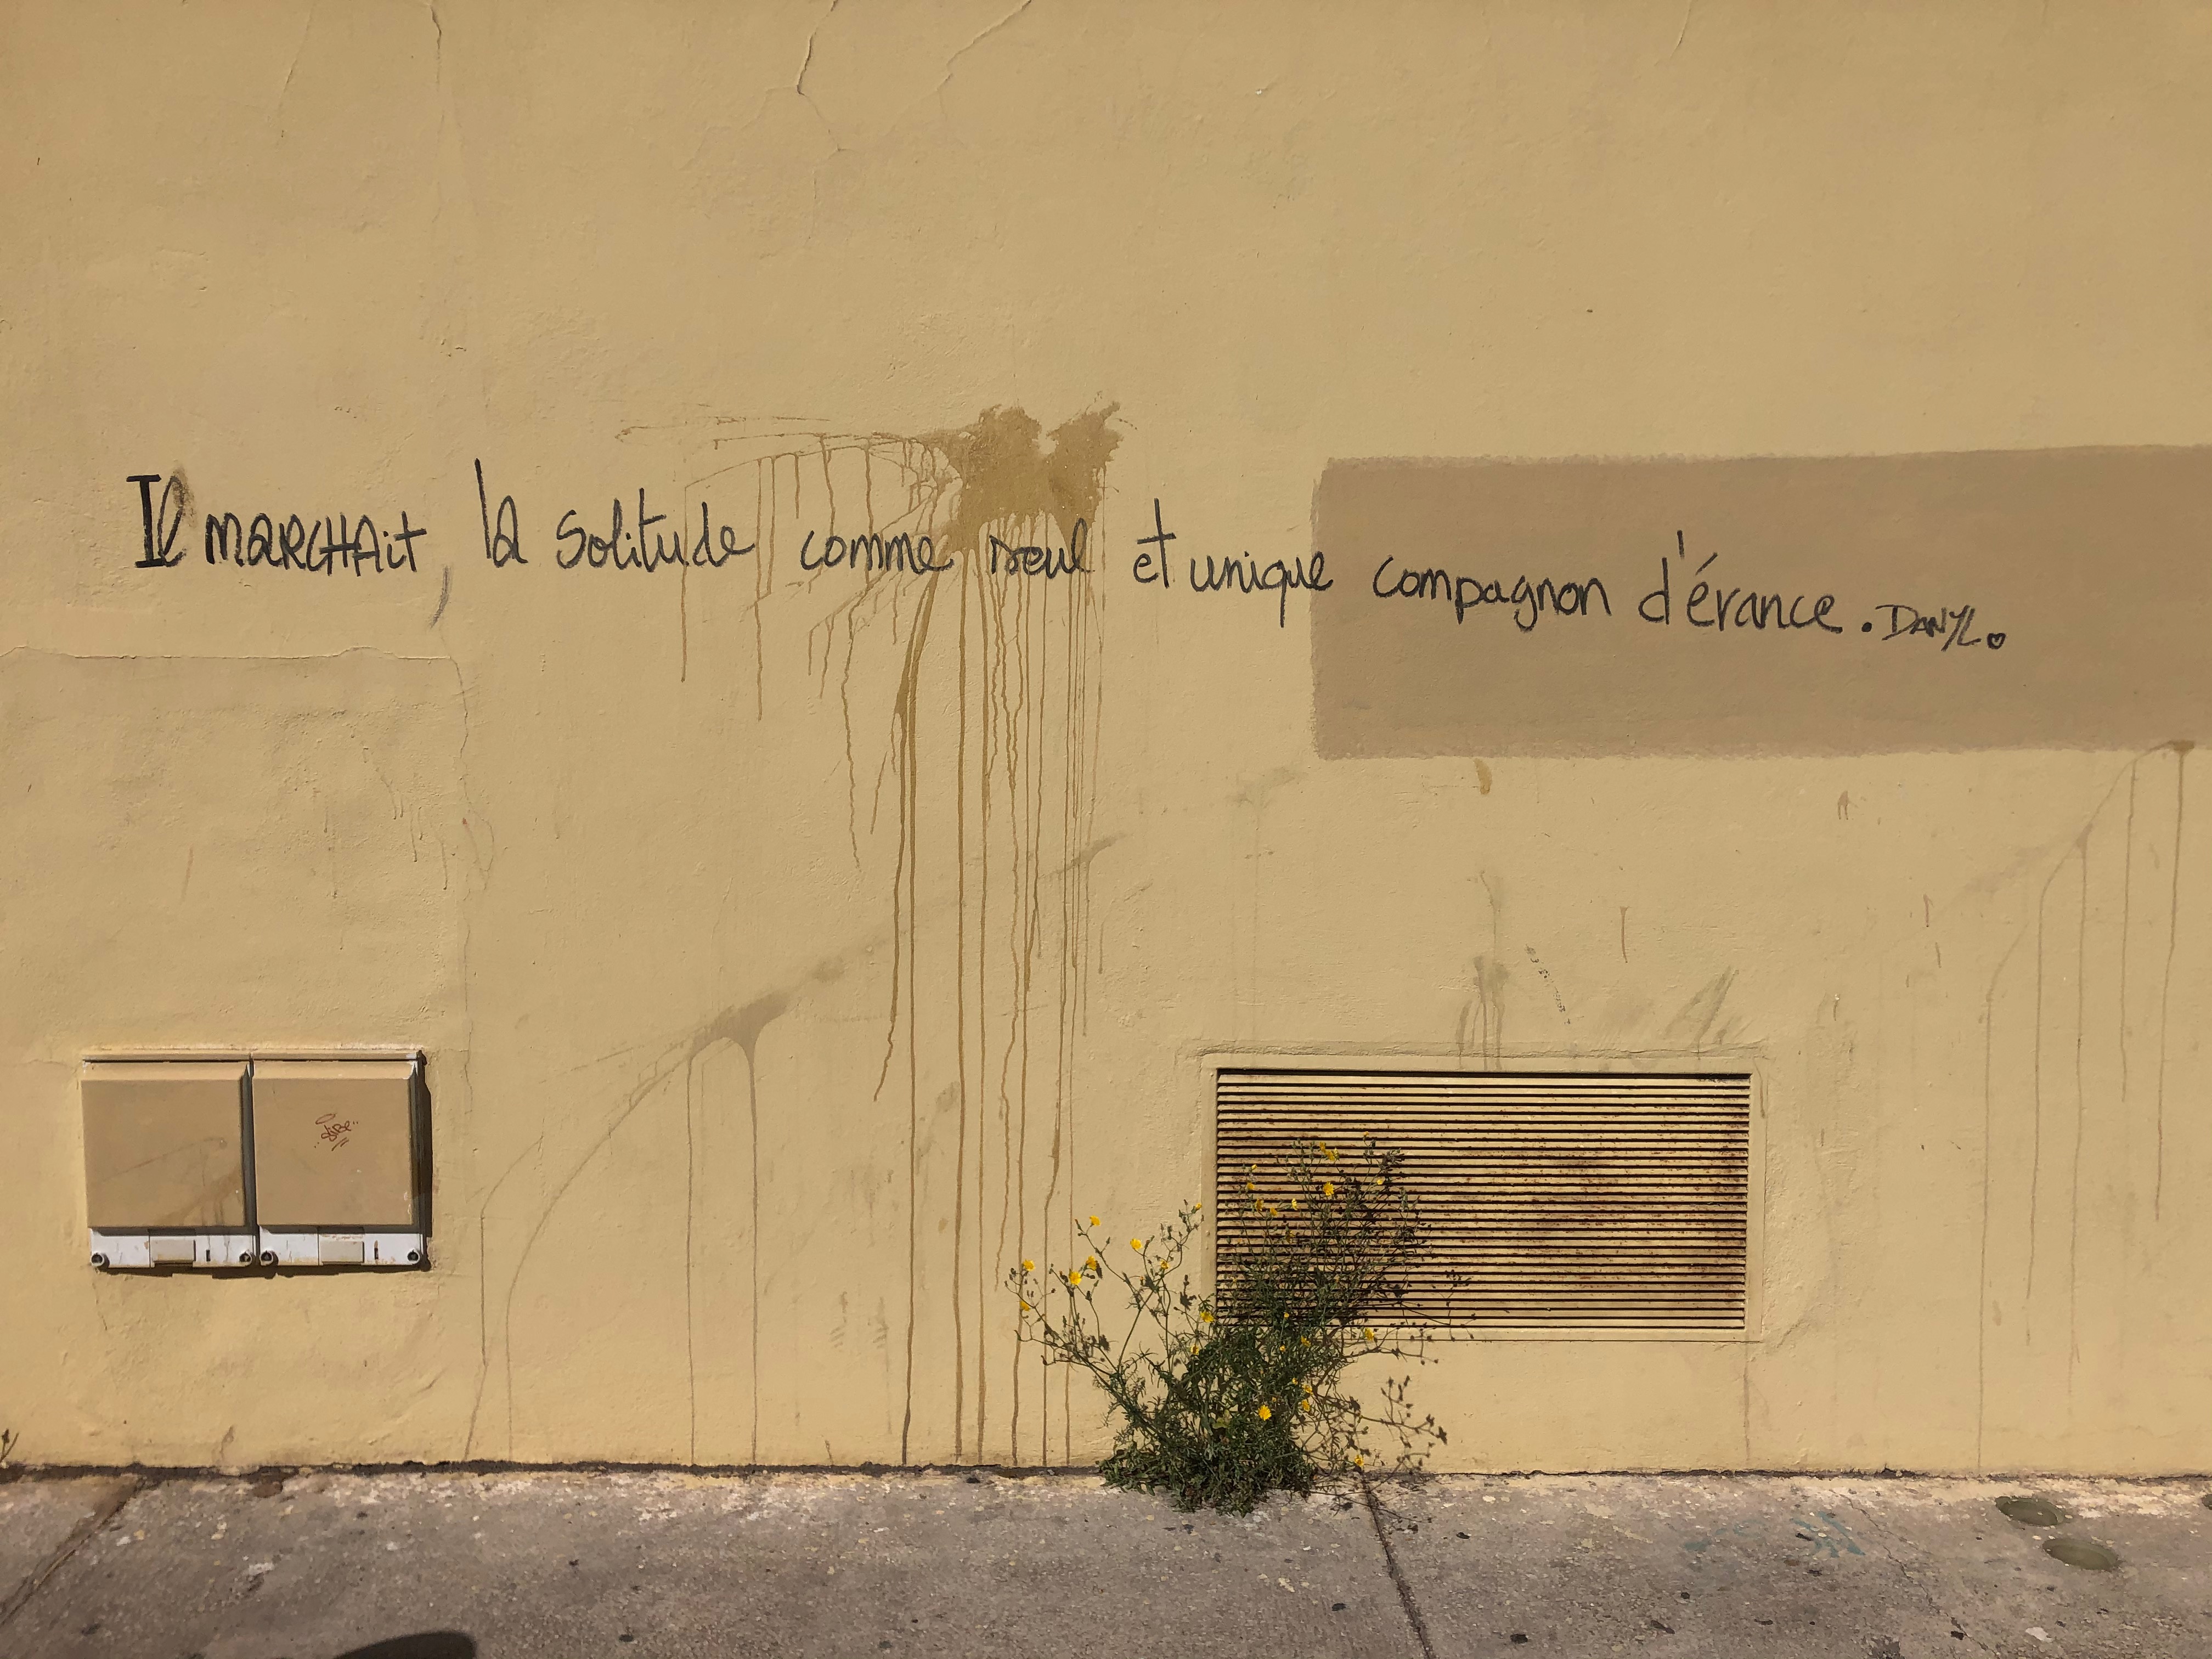 Il MARCHAit, la Solitude comme seul et unique compagnon d'érance. DANYL.